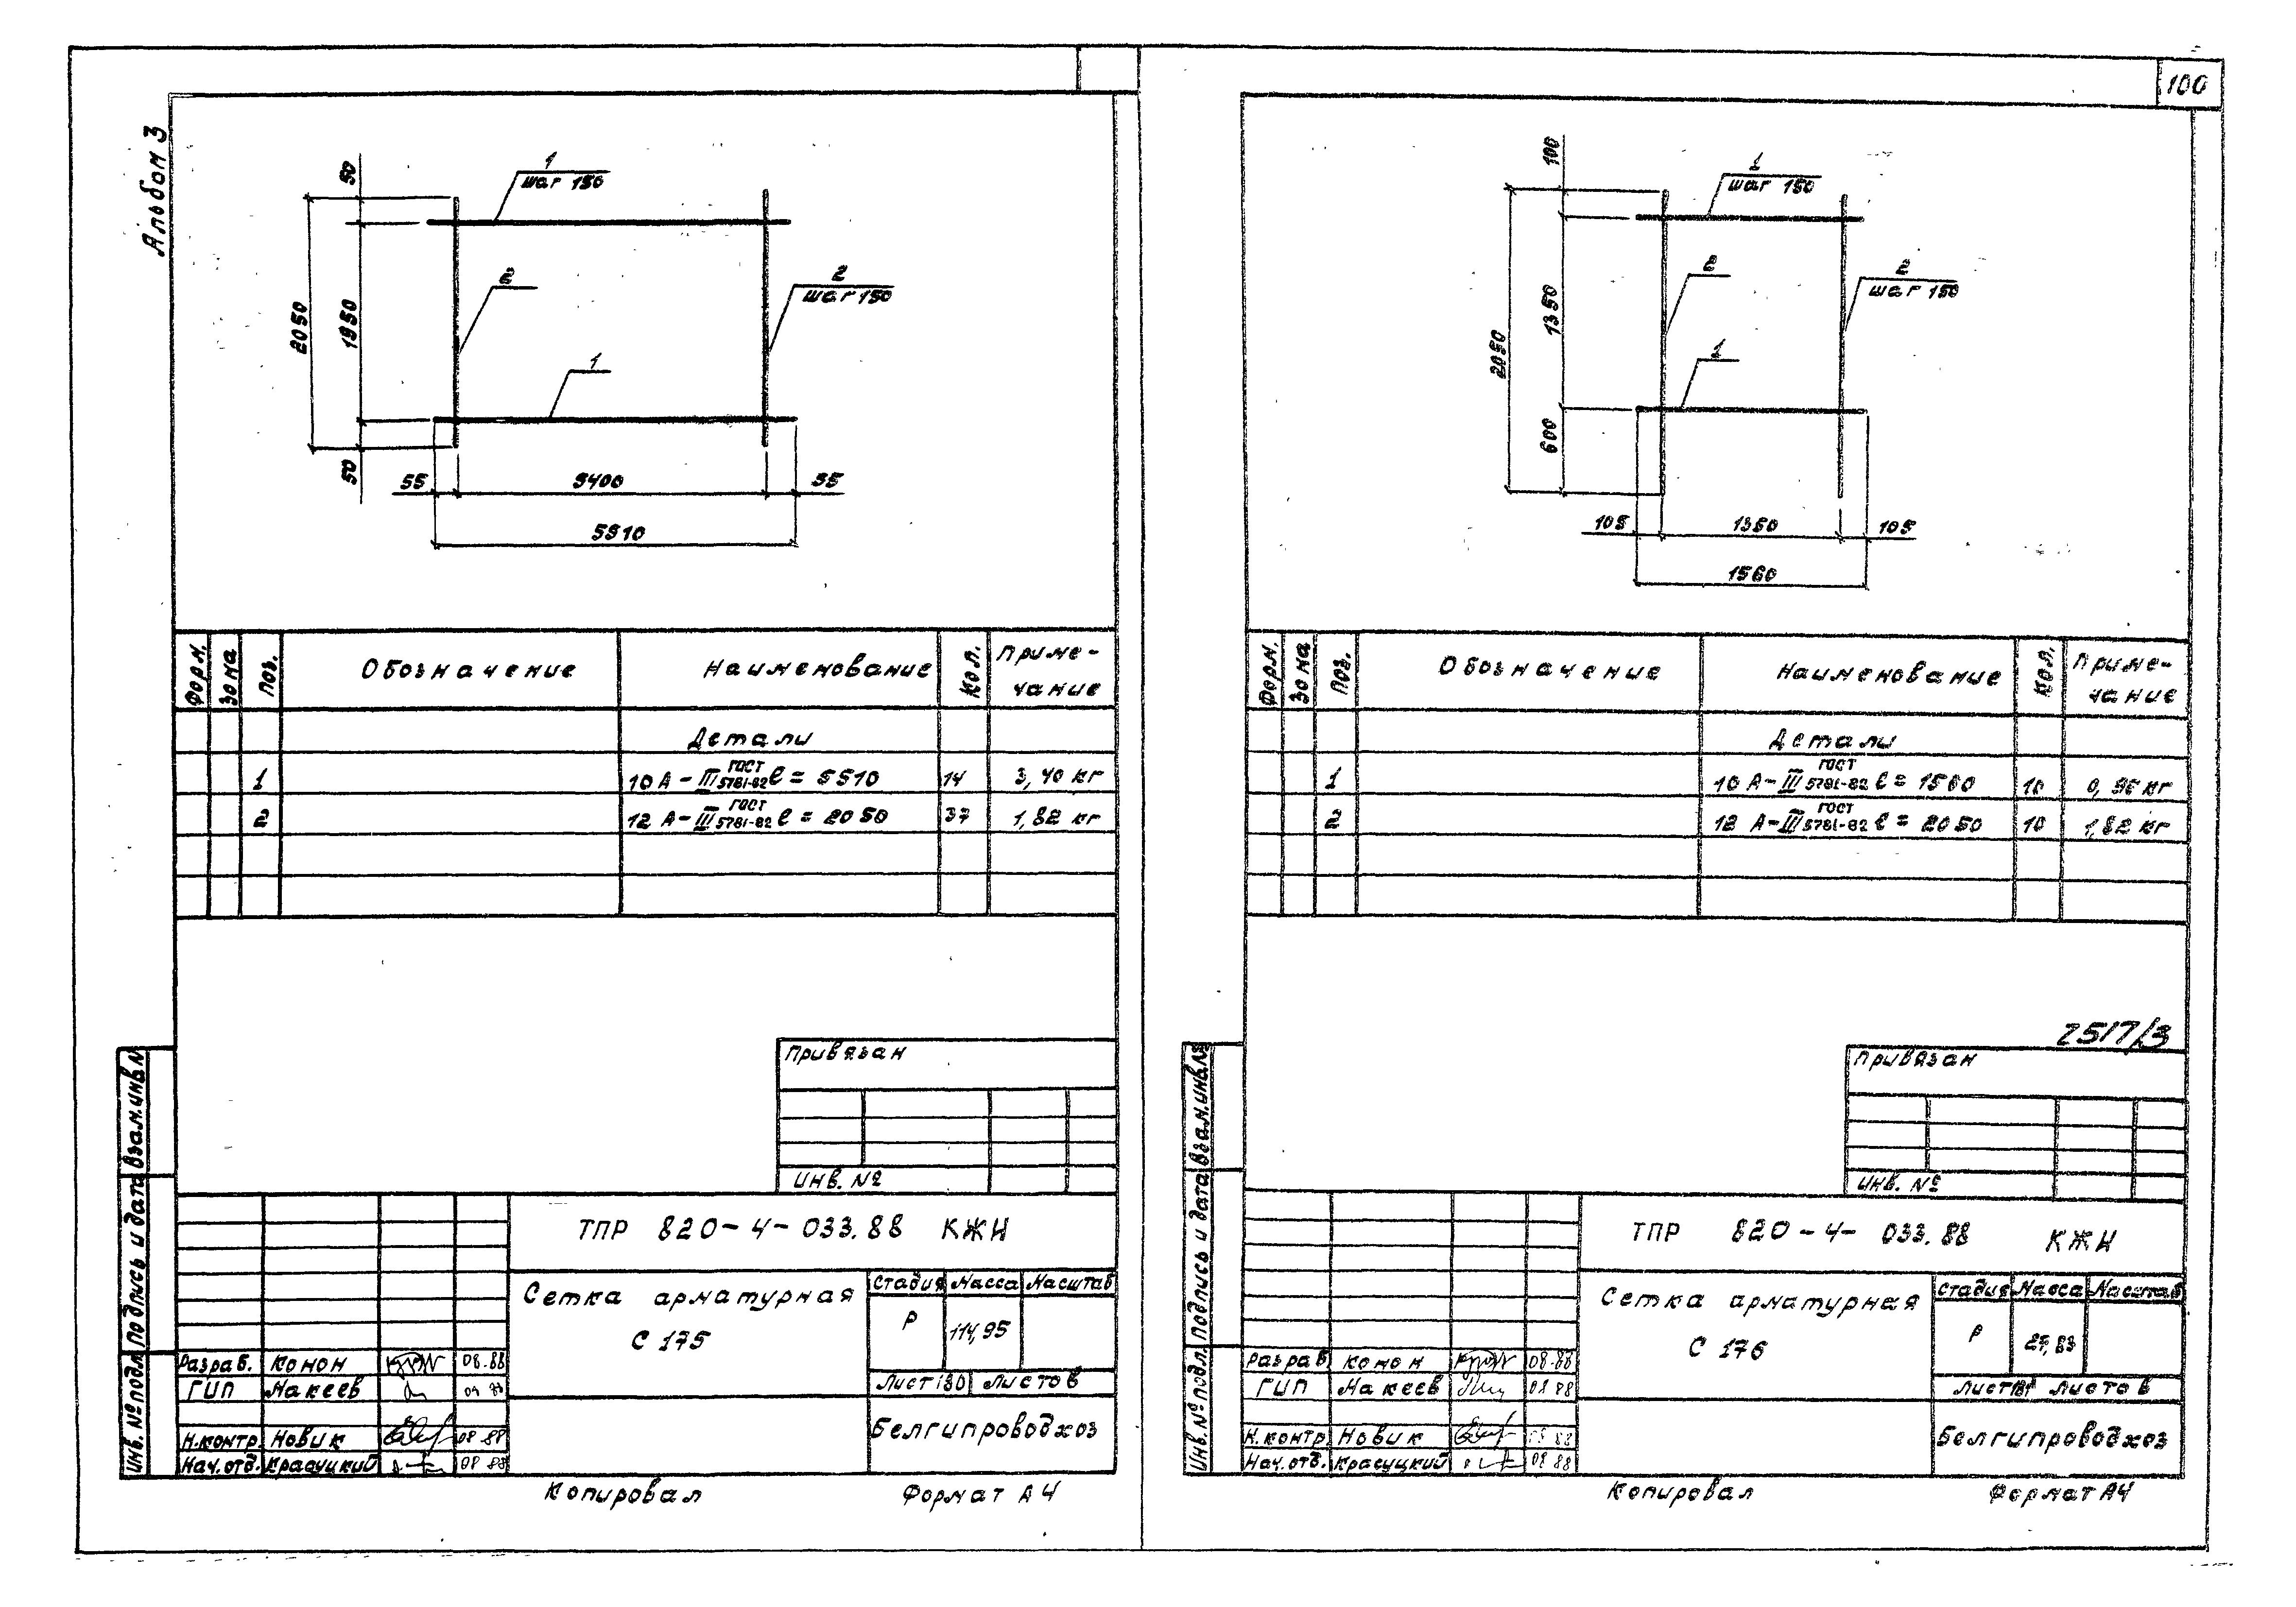 100
Альбом 3
1
шаг 150
50
2050
1950
50
2
2
шаг 150
1
55
5400
55
5510
Форм.
Зона
Поз.
Обозначение
Наименование
Кол.
Приме-
чание
Детали
1
10 А-III ГОСТ 5781-82 ℓ = 5510
14
3,40 кг
2
12 А-III ГОСТ 5781-82 ℓ = 2050
37
1,82 кг
Привязан
Инв. №
ТПР 820-4-033.88 КЖИ
Сетка арматурная
С 175
Стадия
Масса
Масштаб
Р
114,95
Лист 130
Листов
Белгипроводхоз
Разраб.
Конон
08.88
ГИП
Макеев
Н.контр.
Новик
08.88
Нач.отд.
Красуцкий
08 88
Взам.инв.№
Подпись и дата
Инв.№ подл.
Копировал
Формат А4
1
шаг 150
100
2050
1350
600
2
2
шаг 150
1
105
1350
105
1560
Форм.
Зона
Поз.
Обозначение
Наименование
Кол.
Приме-
чание
Детали
1
10 А-III ГОСТ 5781-82 ℓ = 1560
10
0,96 кг
2
12 А-III ГОСТ 5781-82 ℓ = 2050
10
1,82 кг
2517/3
Привязан
Инв. №
ТПР 820-4-033.88 КЖИ
Сетка арматурная
С 176
Стадия
Масса
Масштаб
Р
27,83
Лист 131
Листов
Белгипроводхоз
Разраб.
Конон
08.88
ГИП
Макеев
08 88
Н.контр.
Новик
Нач.отд.
Красуцкий
08 88
Взам.инв.№
Подпись и дата
Инв.№ подл.
Копировал
Формат А4